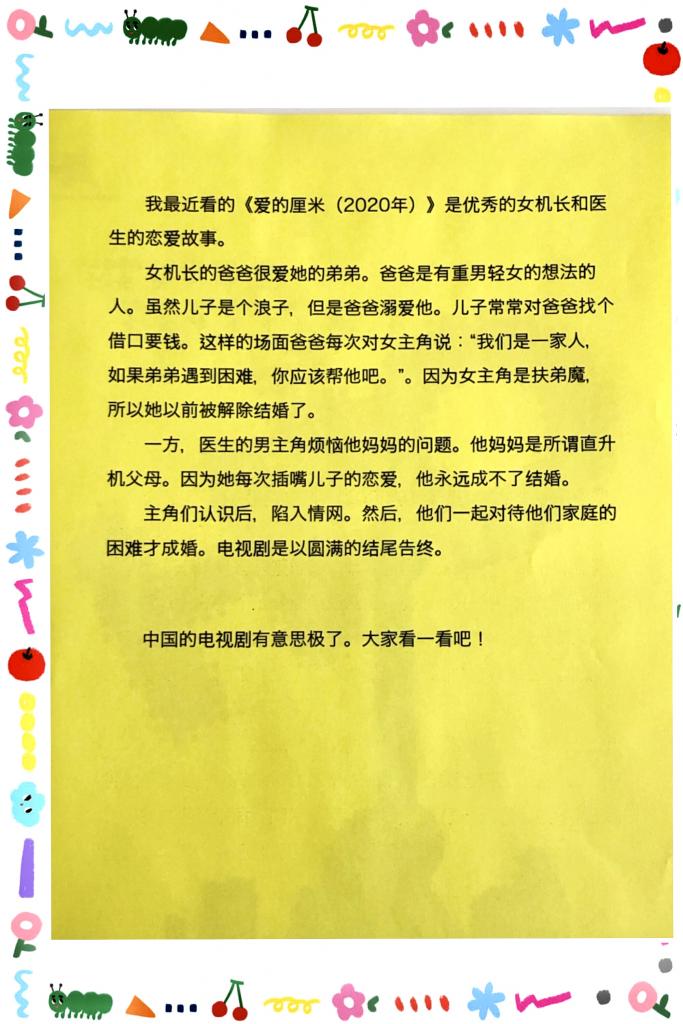 我最近看的《爱的厘米（2020年）》是优秀的女机长和医
生的恋爱故事。
女机长的爸爸很爱她的弟弟。爸爸是有重男轻女的想法的
人。虽然儿子是个浪子，但是爸爸溺爱他。儿子常常对爸爸找个
借口要钱。这样的场面爸爸每次对女主角说：“我们是一家人，
如果弟弟遇到困难，你应该帮他吧。”。因为女主角是扶弟魔，
所以她以前被解除结婚了。
一方，医生的男主角烦恼他妈妈的问题。他妈妈是所谓直升
机父母。因为她每次插嘴儿子的恋爱，他永远成不了结婚。
主角们认识后，陷入情网。然后，他们一起对待他们家庭的
困难才成婚。电视剧是以圆满的结尾告终。
中国的电视剧有意思极了。大家看一看吧！